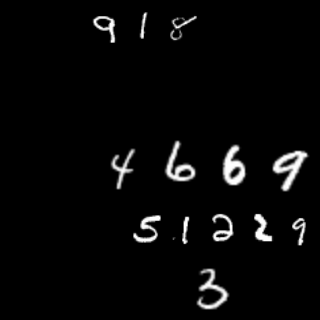 9 1 8
4 6 6 9
5 1 2 2 9
3